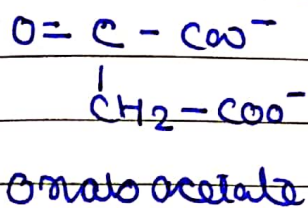 O = C - COO⁻
|
CH2 - COO⁻
oxaloacetate